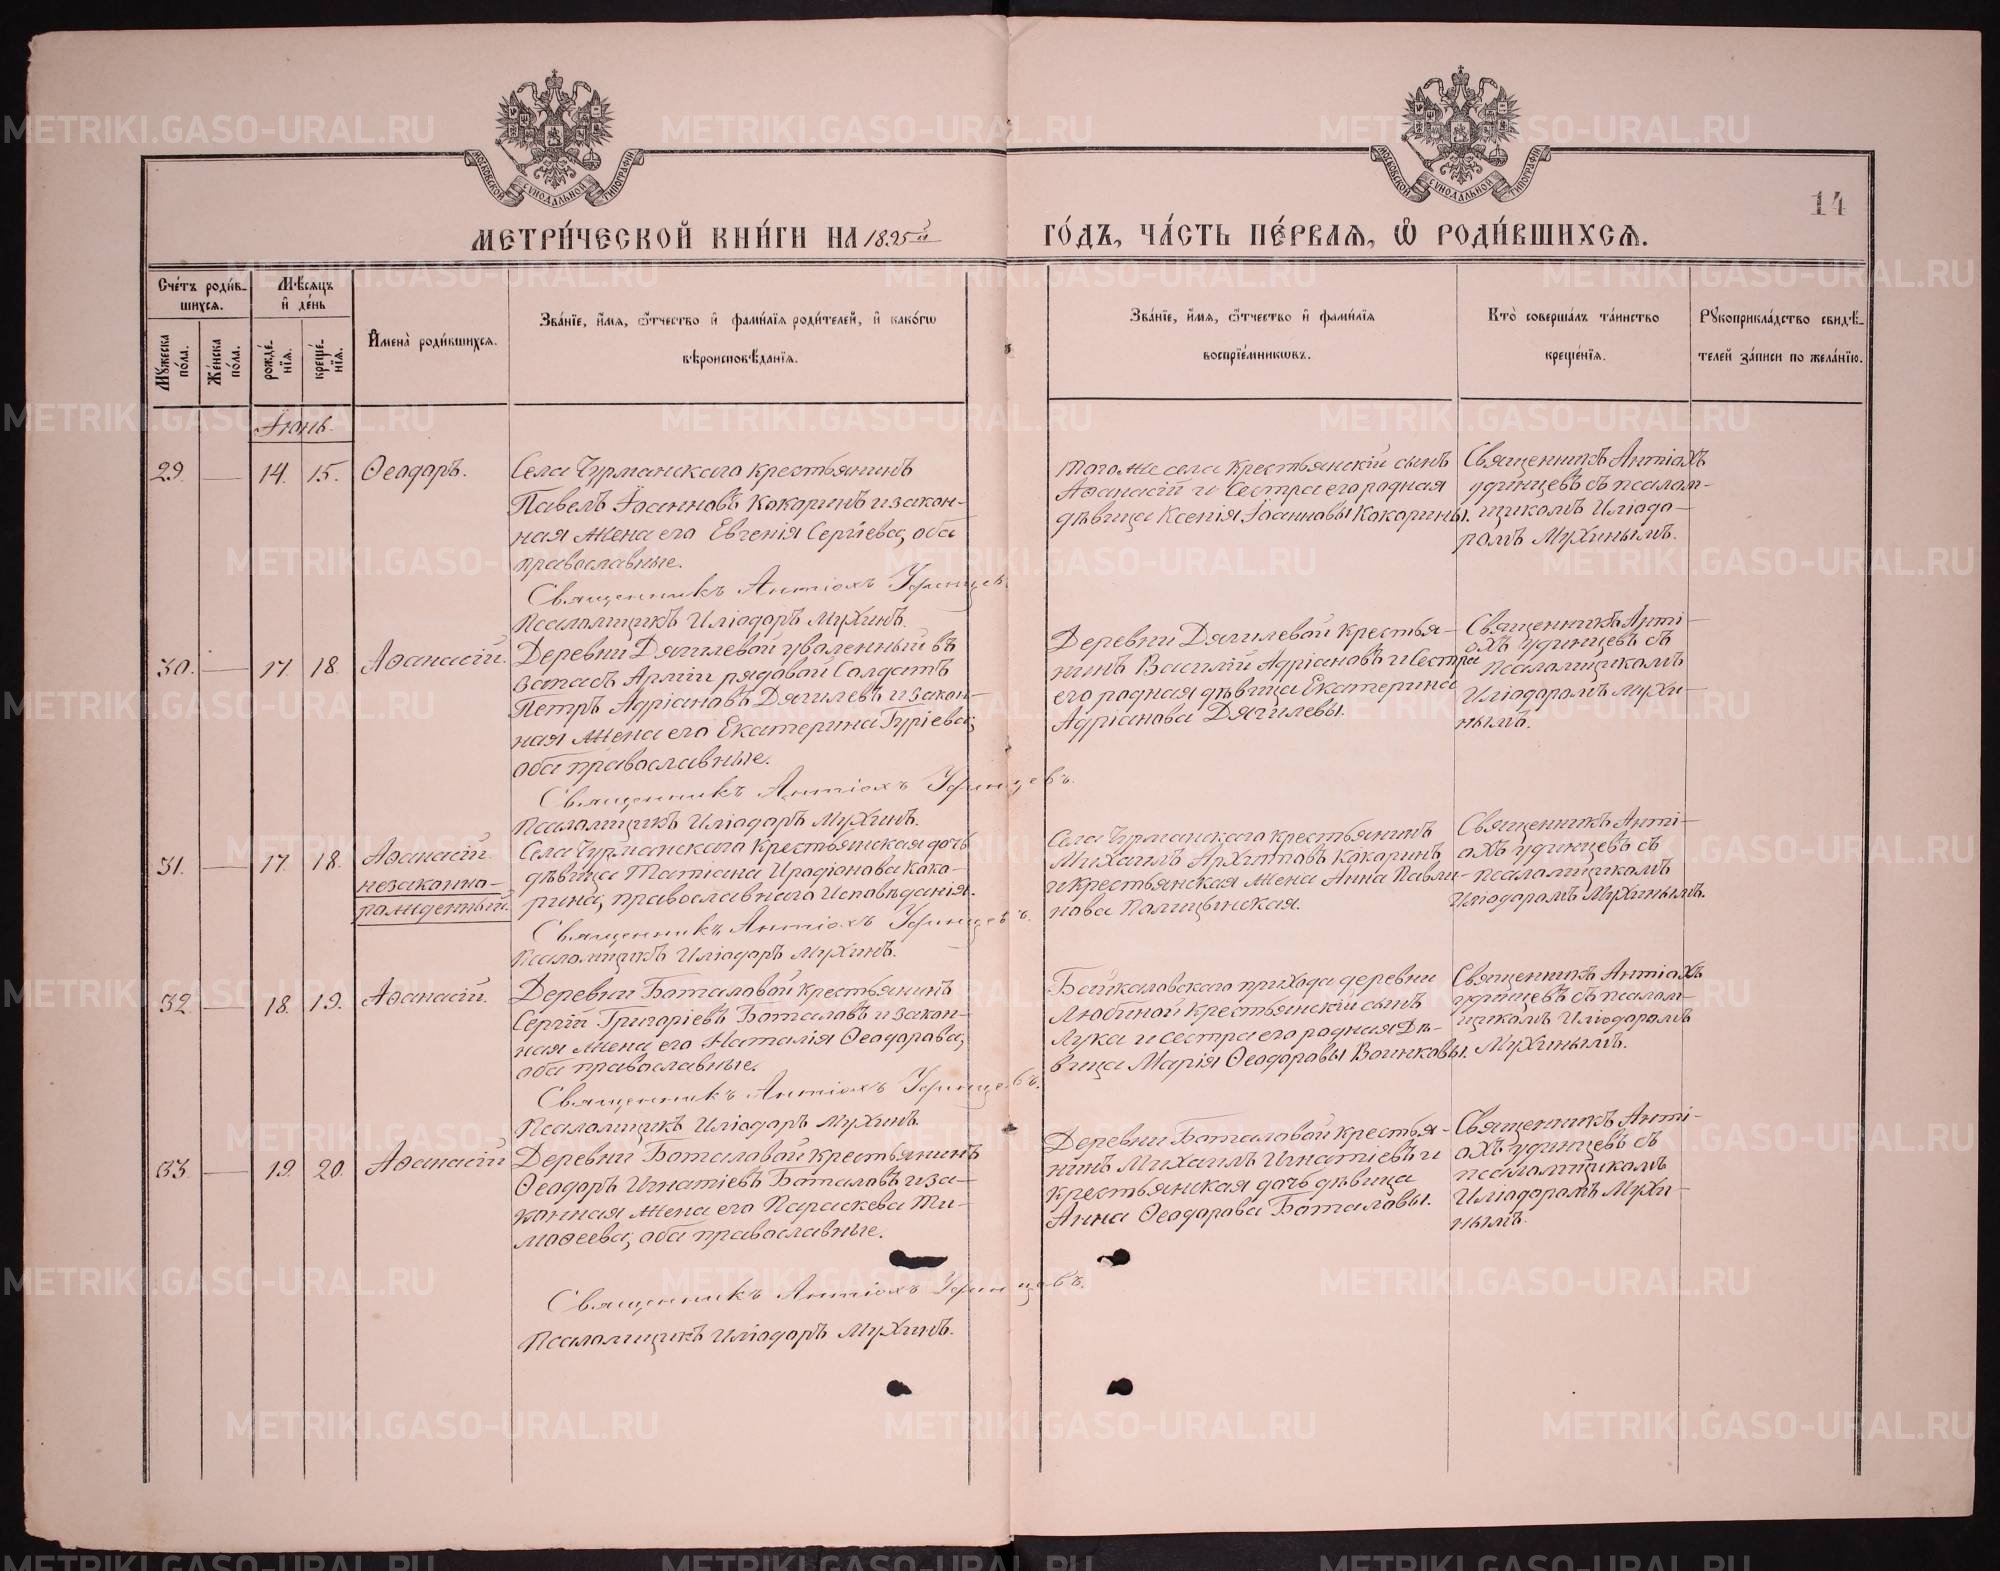 14
МЕТРИ́ЧЕСКОЙ КНИ́ГИ НА 1895й
ГО́ДЪ, ЧА́СТЬ ПЕ́РВАЯ, Ѡ РОДИ́ВШИХСЯ.
Сче́тъ роди́в-
шихся.
Мѣ́сяцъ
и҆ де́нь
Мꙋ́жеска по́ла.
Же́нска по́ла.
рожде́-
нїя.
креще́-
нїя.
И҆мена̀ роди́вшихся.
Зва́нїе, и҆́мя, ѻ҆́тчество и҆ фами́лїя роди́телей, и҆ како́гѡ
вѣроисповѣ́данїя.
Зва́нїе, и҆́мя, ѻ҆́тчество и҆ фами́лїя
воспрїе́мникѡвъ.
Кто̀ соверша́лъ та́инство
креще́нїя.
Рꙋкоприкла́дство свидѣ́-
телей за́писи по жела́нїю.
Іюнь.
29. — 14. 15. Ѳеодоръ.
Села Чурманскаго крестьянинъ
Павелъ Іоанновъ Кокаринъ и закон-
ная жена его Евгенія Сергіева, оба
православные.
Священникъ Антіохъ Удинцевъ
Псаломщикъ Иліодоръ Мухинъ.
того же села крестьянскій сынъ
Аѳанасій и Сестра его родная
дѣвица Ксенія Іоанновы Кокарины.
Священникъ Антіохъ
Удинцевъ съ псалом-
щикомъ Иліодо-
ромъ Мухинымъ.
30. — 17. 18. Аѳанасій.
Деревни Дягилевой уволенный въ
запасъ Арміи рядовой Солдатъ
Петръ Адріановъ Дягилевъ и закон-
ная жена его Екатерина Гуріева,
оба православные.
Священникъ Антіохъ Удинцевъ.
Псаломщикъ Иліодоръ Мухинъ.
Деревни Дягилевой крестья-
нинъ Василій Адріановъ и Сестра
его родная дѣвица Екатерина
Адріанова Дягилевы.
Священникъ Анті-
охъ Удинцевъ съ
псаломщикомъ
Иліодоромъ Мухи-
нымъ.
31. — 17. 18. Аѳанасій
незаконно-
рожденный.
Села Чурманскаго крестьянская дочь
дѣвица Татіана Иродіонова Кока-
рина, православнаго Исповѣданія.
Священникъ Антіохъ Удинцевъ.
Псаломщикъ Иліодоръ Мухинъ.
Села Чурманскаго крестьянинъ
Михаилъ Архиповъ Кокаринъ
и крестьянская жена Анна Павли-
нова
Священникъ Анті-
охъ Удинцевъ съ
псаломщикомъ
Иліодоромъ Мухинымъ.
32. — 18. 19. Аѳанасій.
Деревни Боталовой крестьянинъ
Сергій Григоріевъ Боталовъ и закон-
ная жена его Наталія Ѳеодорова,
оба православные.
Священникъ Антіохъ Удинцевъ.
Псаломщикъ Иліодоръ Мухинъ.
Байкаловскаго прихода деревни
Любиной крестьянскій сынъ
Лука и сестра его родная дѣ-
вица Марія Ѳеодоровы Воинковы.
Священникъ Антіохъ
Удинцевъ съ псалом-
щикомъ Иліодоромъ
Мухинымъ.
33. — 19. 20. Аѳанасій
Деревни Боталовой крестьянинъ
Ѳеодоръ Игнатіевъ Боталовъ и за-
конная жена его Параскева Ти-
моѳеева, оба православные.
Священникъ Антіохъ Удинцевъ.
Псаломщикъ Иліодоръ Мухинъ.
Деревни Боталовой крестья-
нинъ Михаилъ Игнатіевъ и
крестьянская дочь дѣвица
Анна Ѳеодорова Боталовы.
Священникъ Анті-
охъ Удинцевъ съ
псаломщикомъ
Иліодоромъ Мухи-
нымъ.